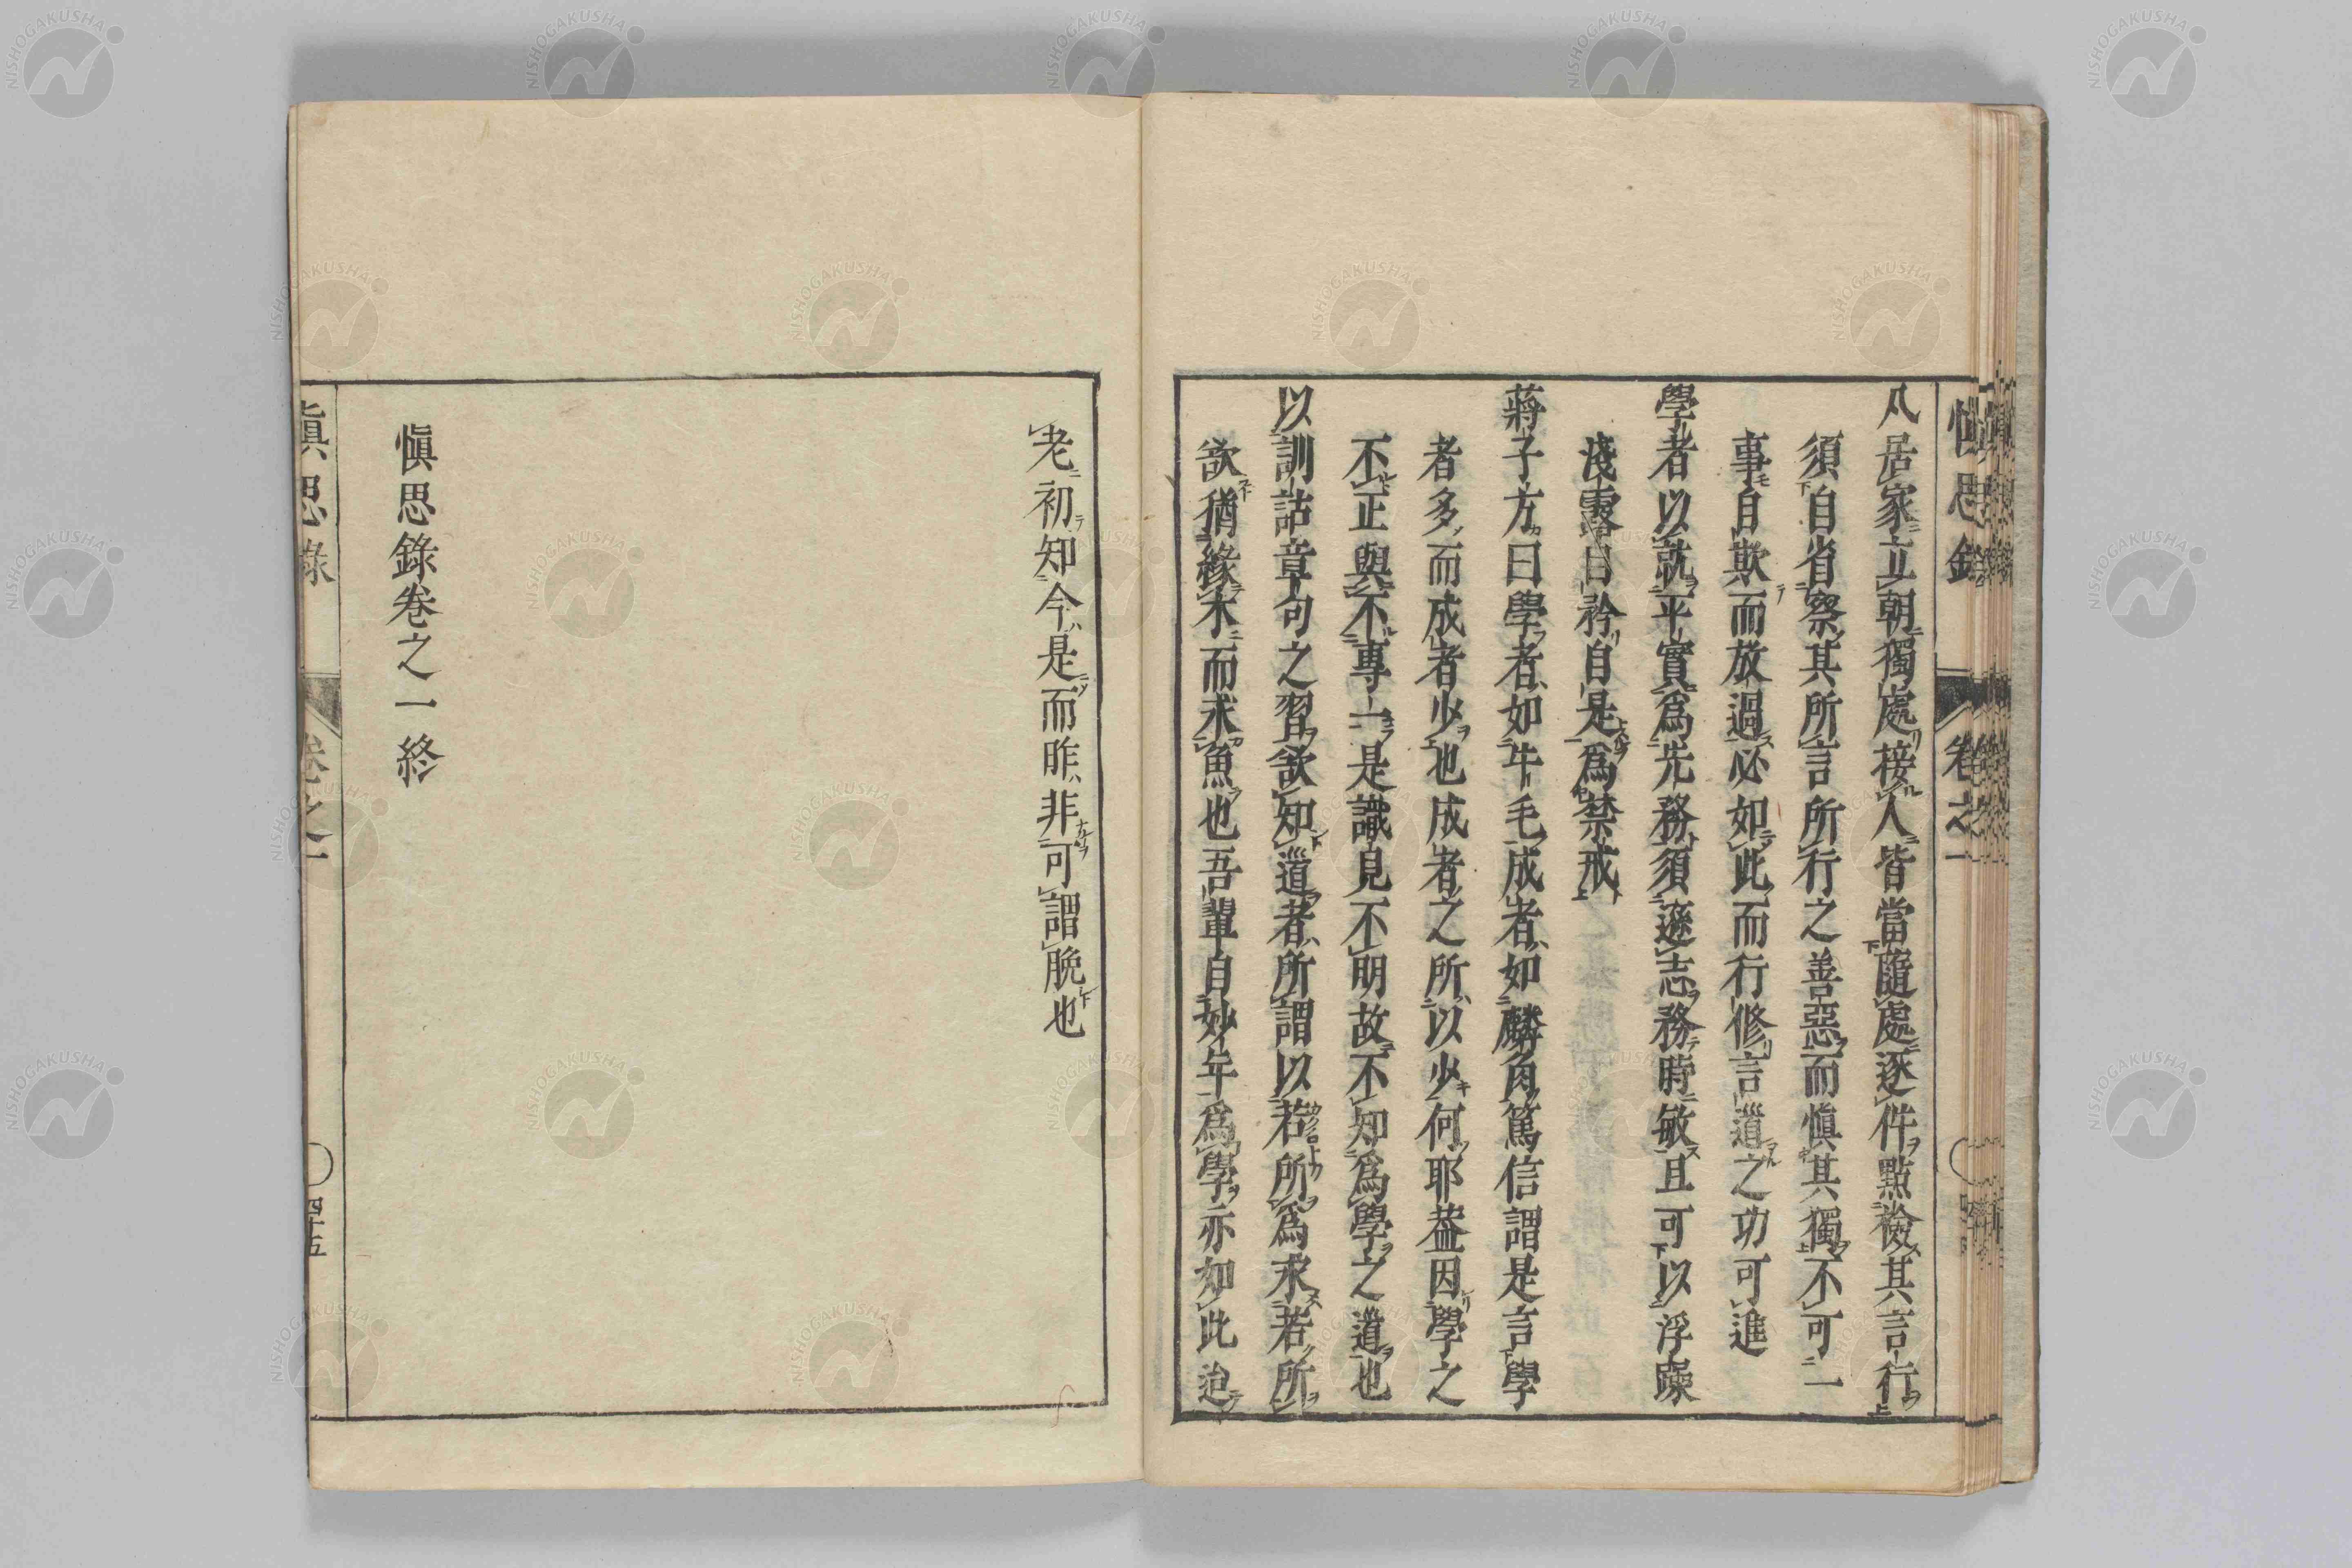 凡居家立朝獨處接人皆當隨處逐件點檢其言行
須自省察其所言所行之善惡而愼其獨不可一
事自欺而放過必如此而行修言道之功可進
學者以就平實爲先務須遜志務時敏且可以浮躁
淺露曰矜自是爲禁戒
蔣子方曰學者如牛毛成者如麟角篤信謂是言學
者多而成者少也成者之所以少何耶葢因學之
不正與不專一是識見不明故不知爲學之道也
以訓詁章句之習欲知道者所謂以若所爲求若所
欲猶緣木而求魚也吾輩自妙年爲學亦如此迨
愼思錄
卷之一
老初知今是而昨非可謂晚也
愼思錄卷之一終
愼思錄
卷之一
四十五
NISHOGAKUSHA